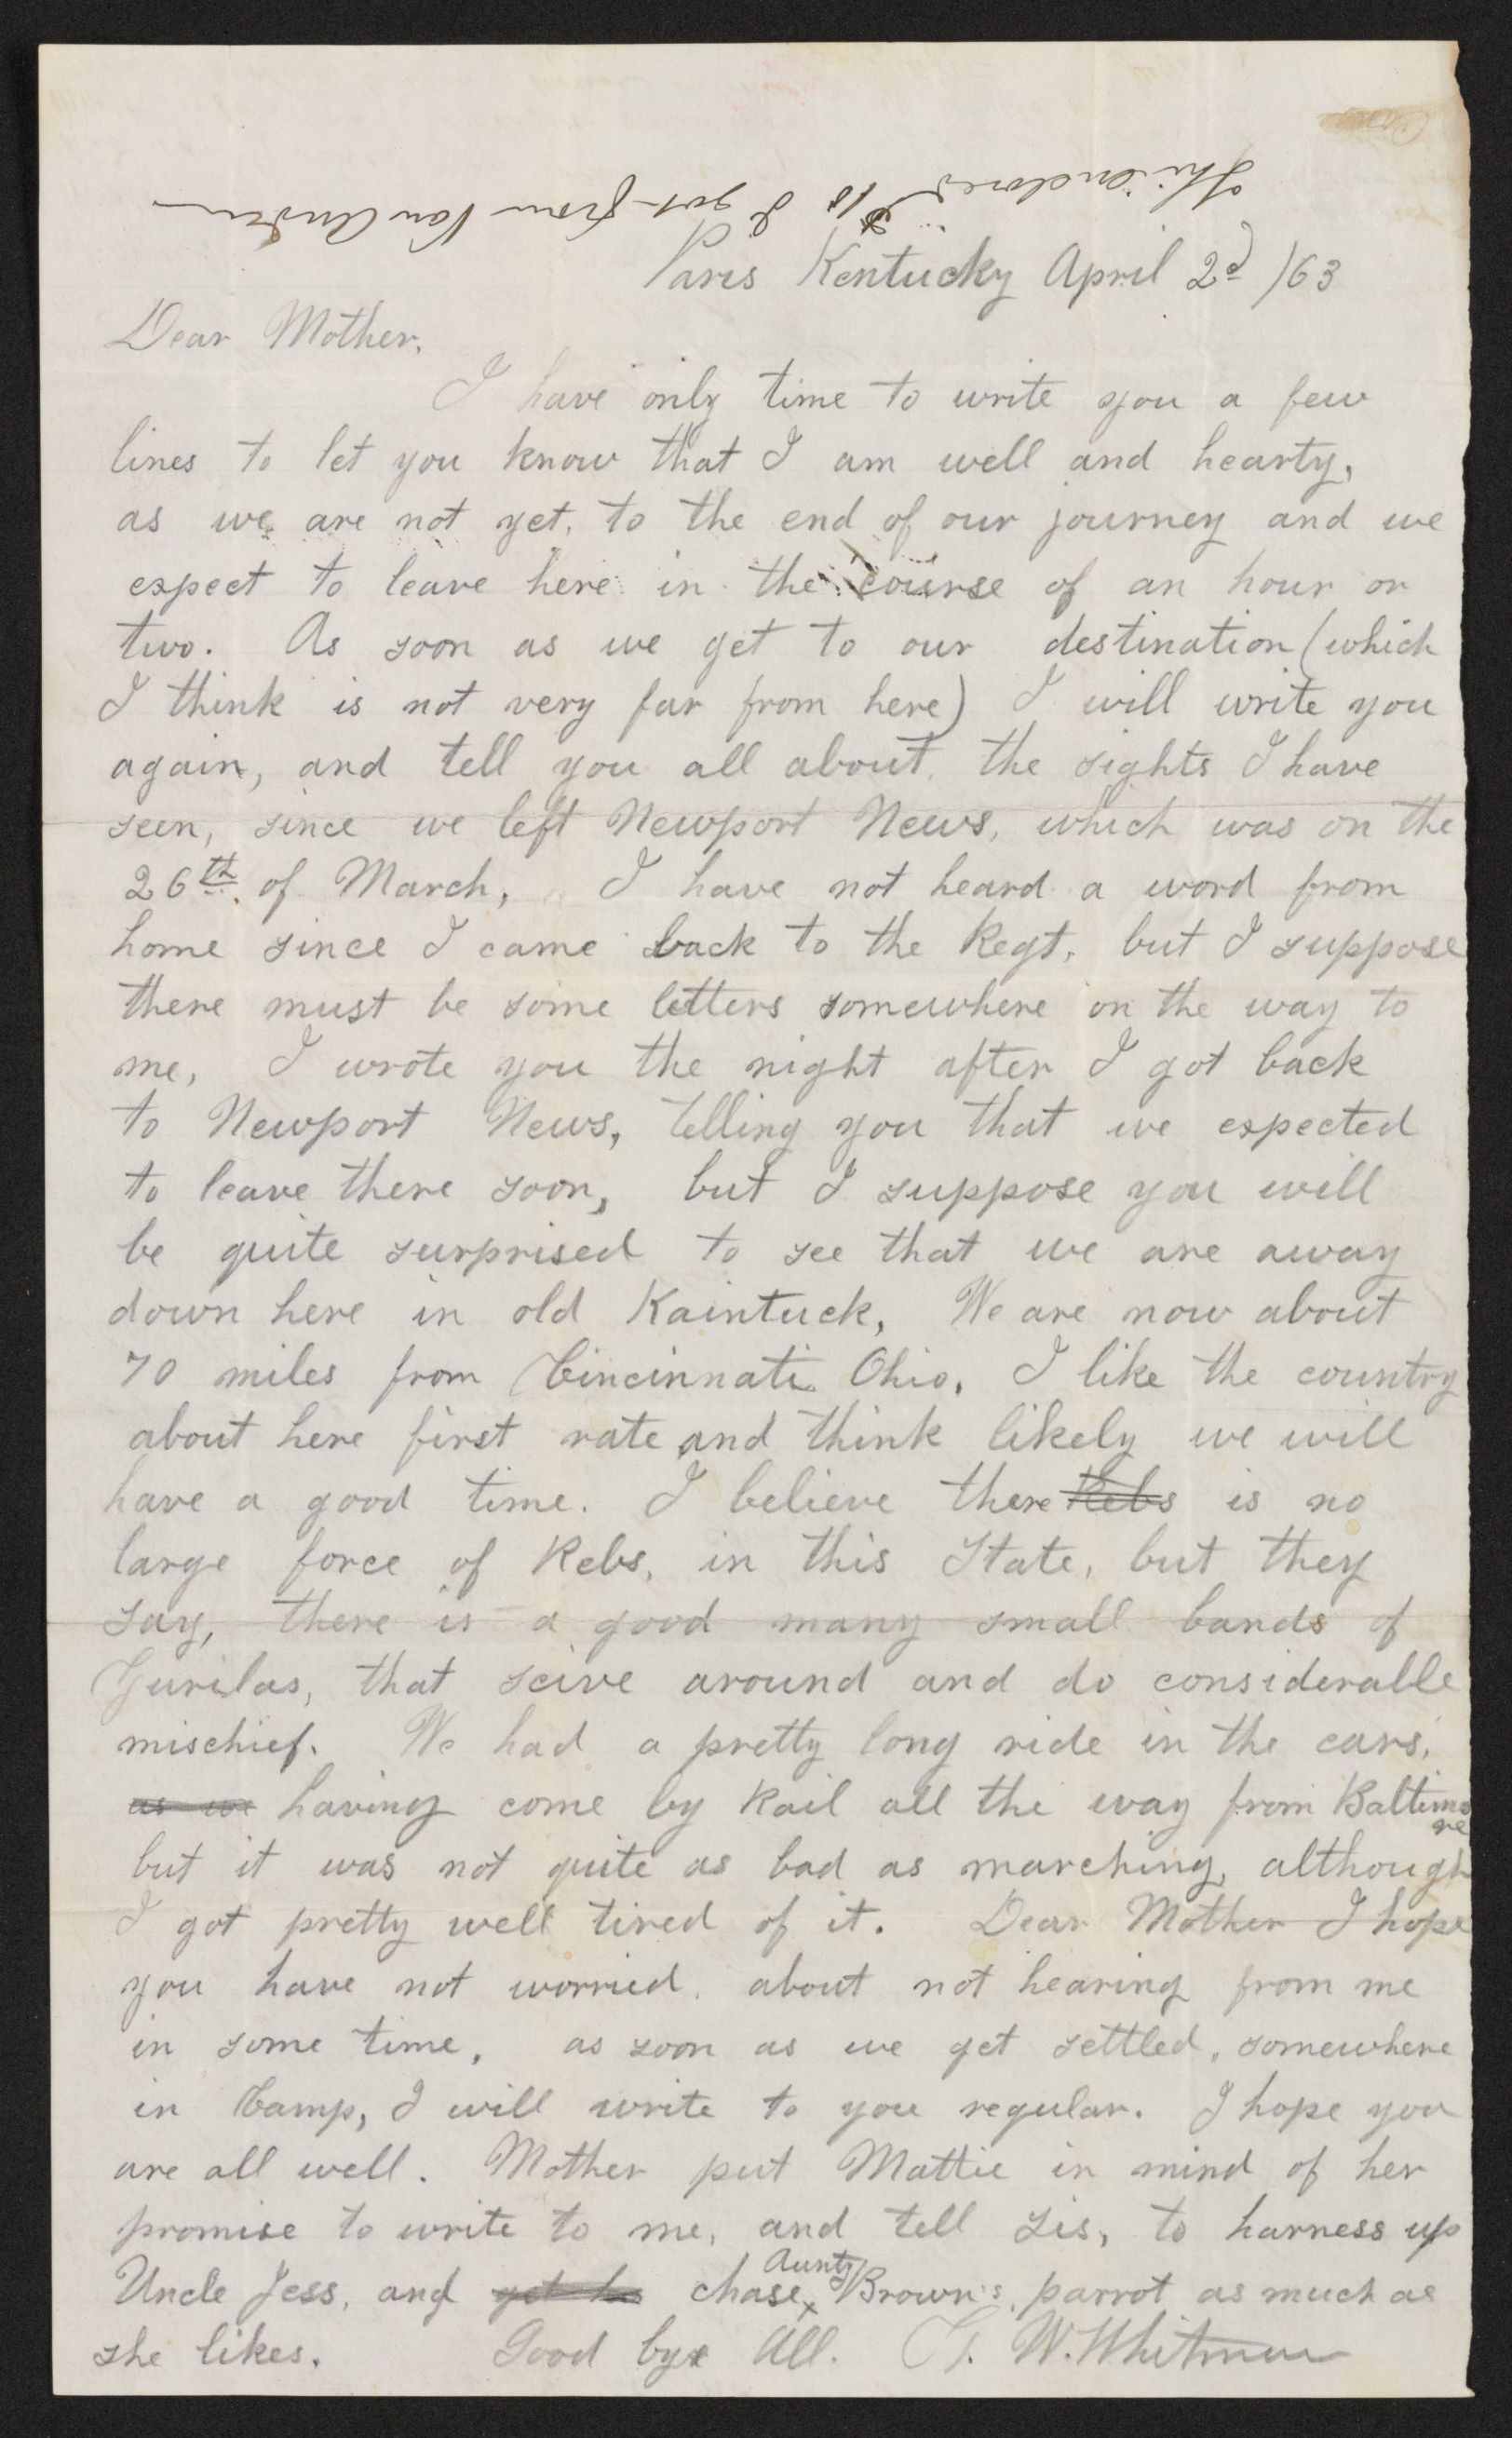 The enclosed $10 I got from Van Anden
Paris Kentucky April 2d /63
Dear Mother,
I have only time to write you a few
lines to let you know that I am well and hearty,
as we are not yet, to the end of our journey and we
expect to leave here in the course of an hour or
two. As soon as we get to our destination (which
I think is not very far from here) I will write you
again, and tell you all about, the sights I have
seen, since we left Newport News, which was on the
26th of March, I have not heard a word from
home since I came back to the Regt, but I suppose
there must be some letters somewhere on the way to
me, I wrote you the night after I got back
to Newport News, telling you that we expected
to leave there soon, but I suppose you will
be quite surprised to see that we are away
down here in old Kaintuck, We are now about
70 miles from Cincinnati Ohio, I like the country
about here first rate and think likely we will
have a good time. I believe there Rebs is no
large force of Rebs, in this State, but they
say, there is a good many small bands of
Gurilas, that scive around and do considerable
mischief. We had a pretty long ride in the cars,
as we having come by Rail all the way from Baltimore
but it was not quite as bad as marching, although
I got pretty well tired of it. Dear Mother I hope
you have not worried, about not hearing from me
in some time, as soon as we get settled, somewhere
in Camp, I will write to you regular. I hope you
are all well. Mother put Mattie in mind of her
promise to write to me, and tell Sis, to harness up
Uncle Jess, and get his chase Aunty Brown's, parrot as much as
she likes. Good bye All. G. W. Whitman